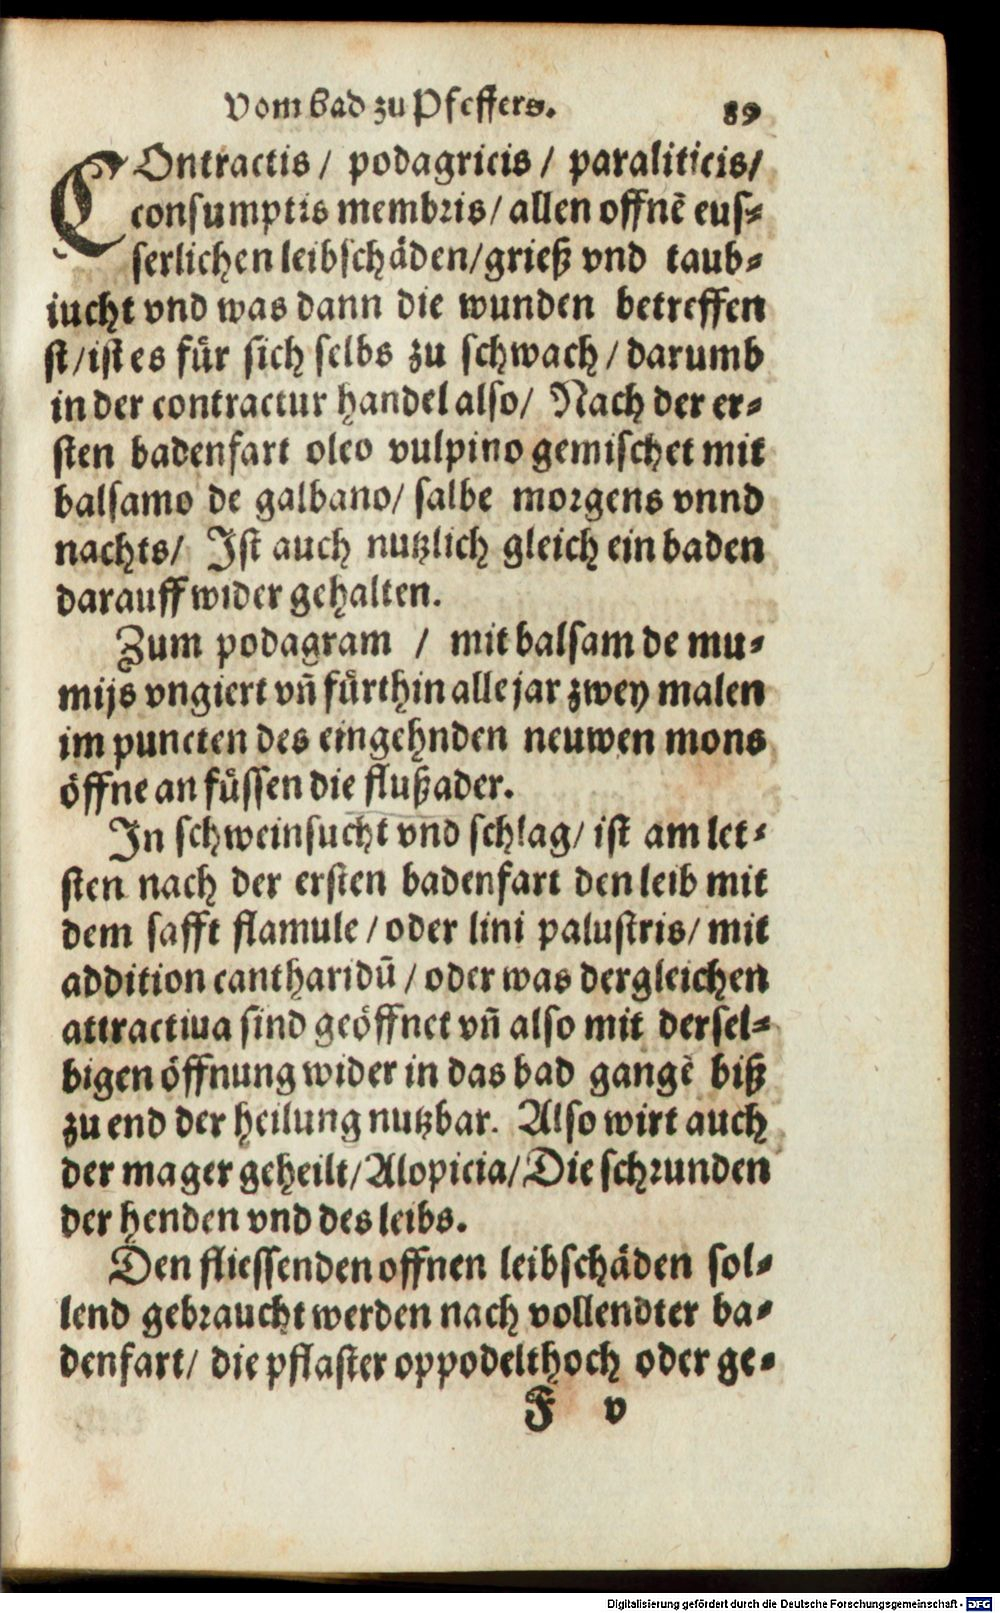 Vom bad zu Pfeffers. 89
COntractis / podagricis / paraliticis/
consumptis membris/ allen offnẽ eus⸗
serlichen leibschäden/grieß vnd taub⸗
sucht vnd was dann die wunden betreffen
ist/ist es für sich selbs zu schwach / darumb
in der contractur handel also/ Nach der er⸗
sten badenfart oleo vulpino gemischet mit
balsamo de galbano/ salbe morgens vnnd
nachts/ Ist auch nutzlich gleich ein baden
darauff wider gehalten.
Zum podagram / mit balsam de mu⸗
mijs vngiert vñ fürthin alle jar zwey malen
im puncten des eingehnden neuwen mons
öffne an füssen die flußader.
In schweinsucht vnd schlag/ ist am let⸗
sten nach der ersten badenfart den leib mit
dem safft flamule / oder lini palustris/ mit
addition cantharidũ / oder was dergleichen
attractiua sind geöffnet vñ also mit dersel⸗
bigen öffnung wider in das bad gangẽ biß
zu end der heilung nutzbar. Also wirt auch
der mager geheilt/Alopicia/Die schrunden
der henden vnd des leibs.
Den fliessenden offnen leibschäden sol⸗
lend gebraucht werden nach vollendter ba⸗
denfart/ die pflaster oppodelthoch oder ge⸗
F v
Digitalisierung gefördert durch die Deutsche Forschungsgemeinschaft - DFG